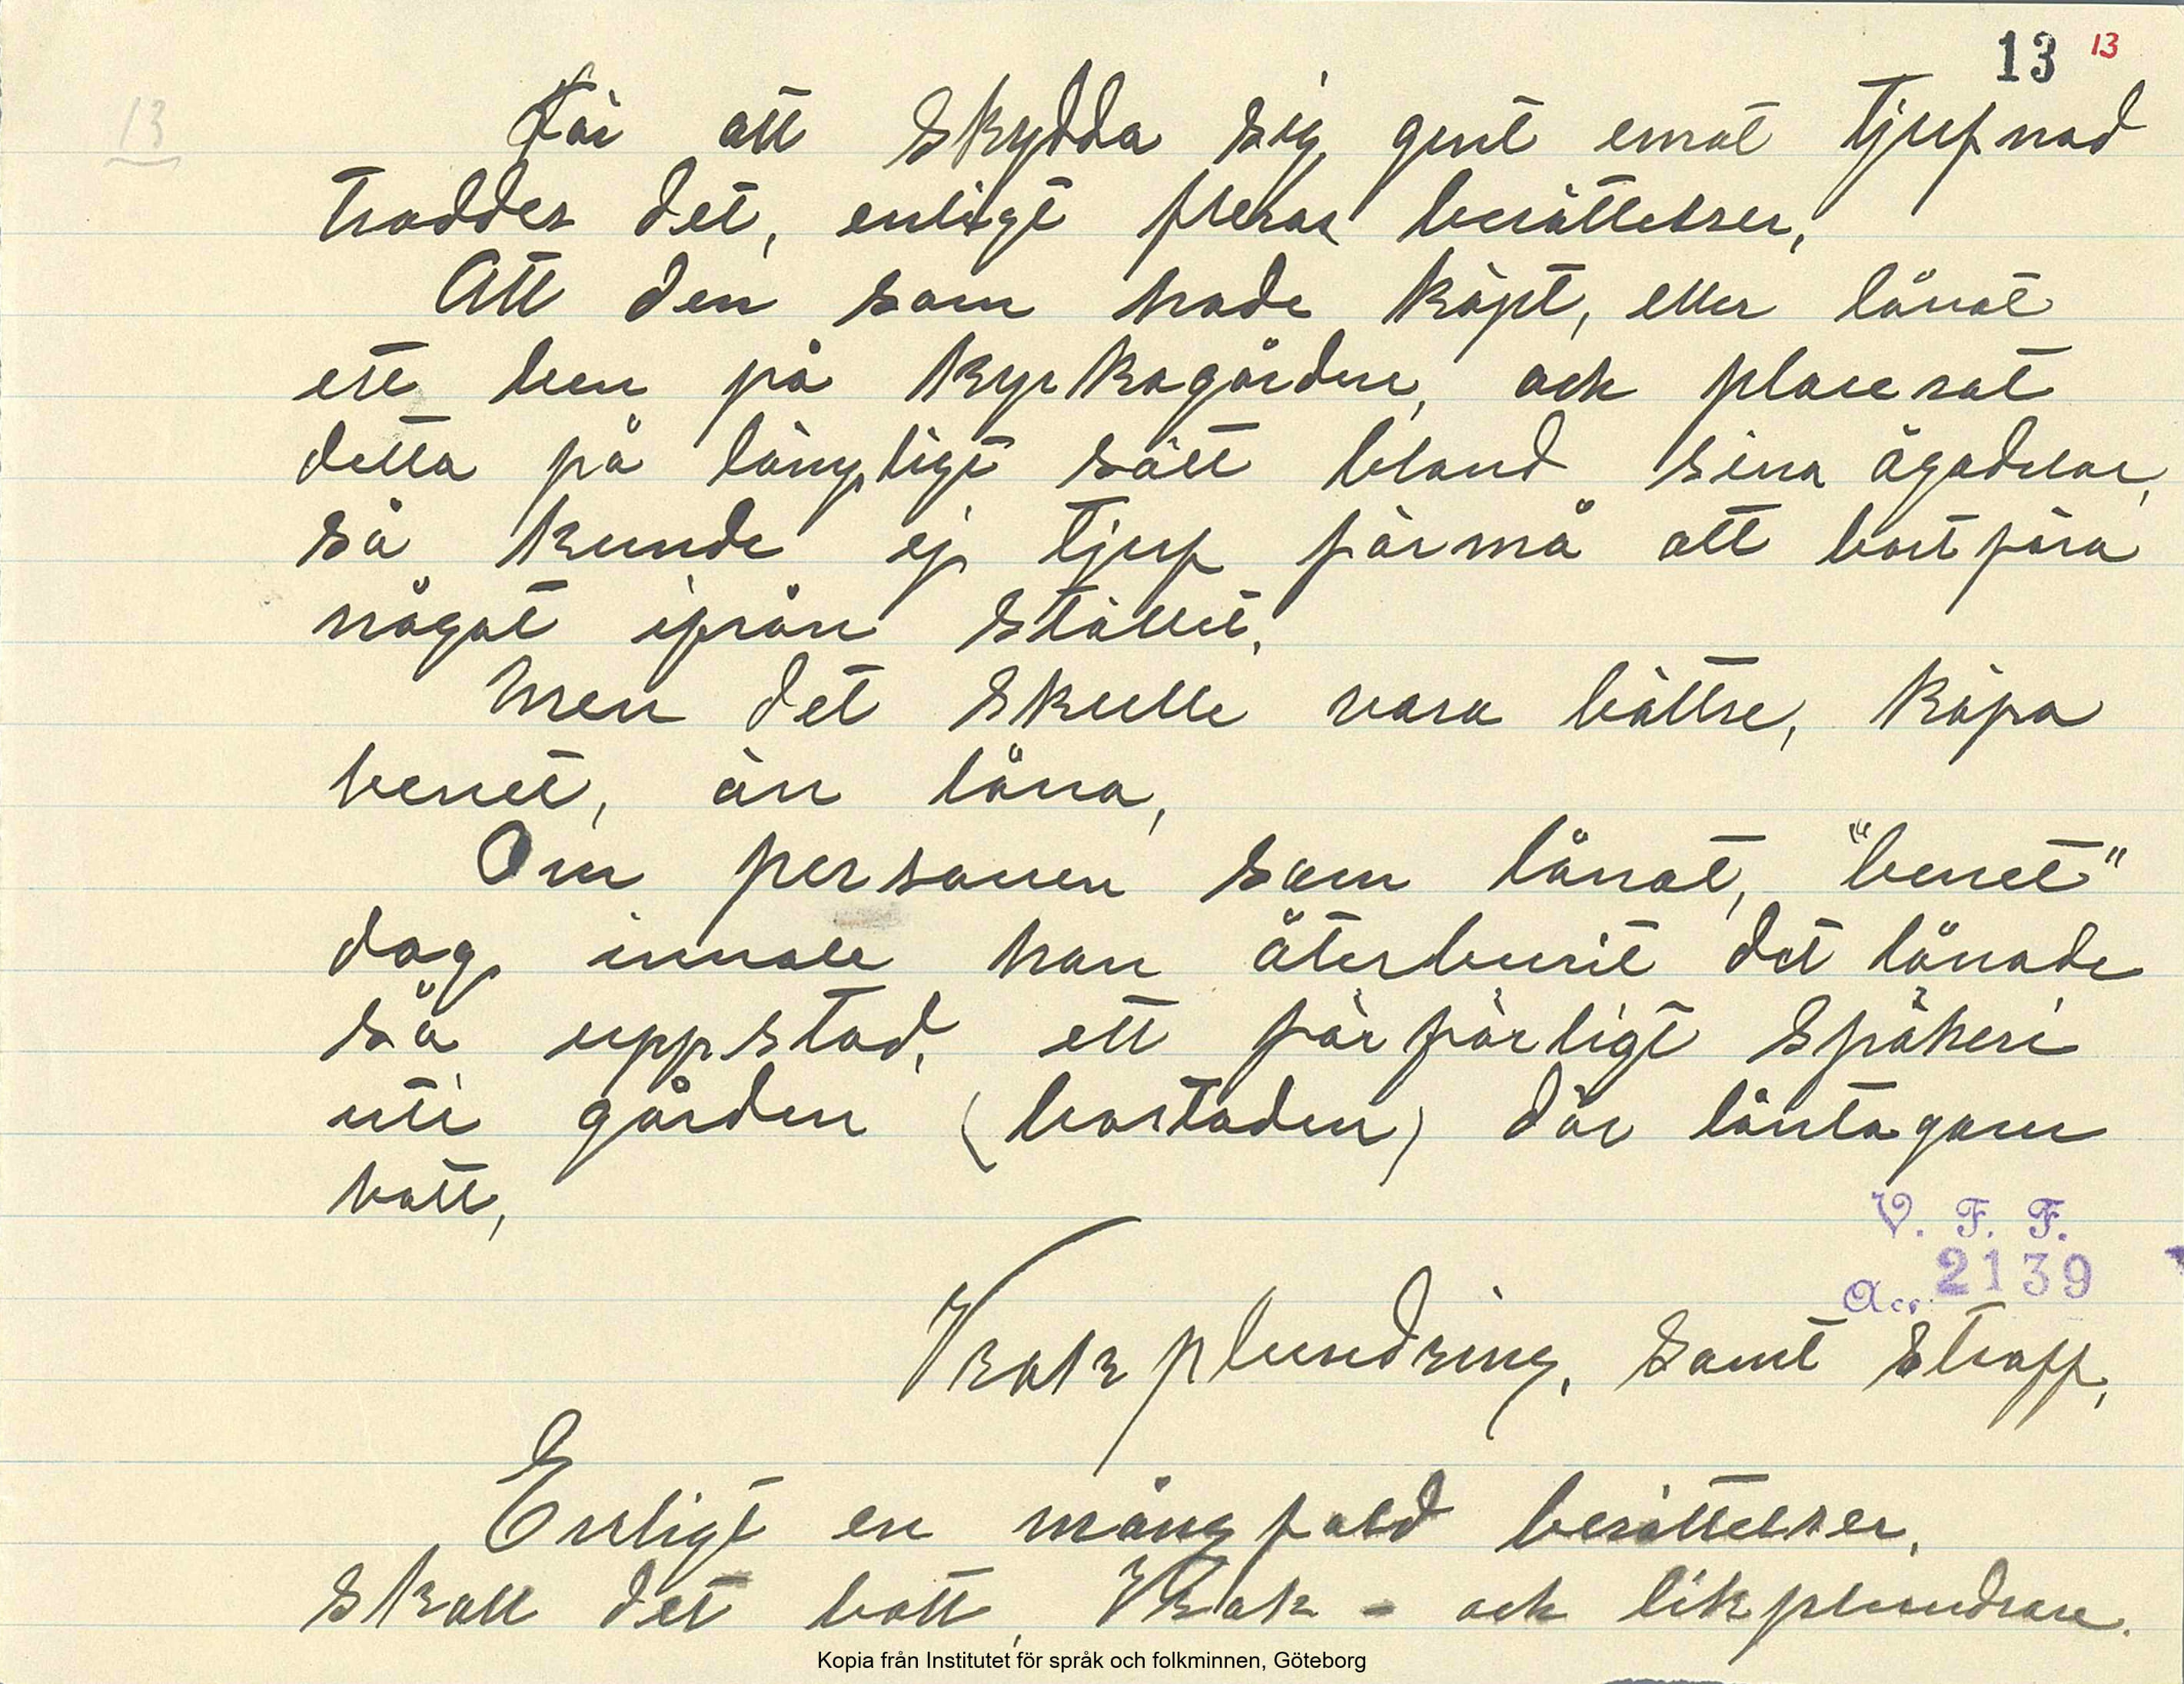 13 13
13
För att skydda sig gent emot tjufnad
troddes det, enligt fleras berättelser,
Att den som hade köpt, eller lånat
ett ben på kyrkogården, och placerat
detta på lämpligt sätt bland sina ägodelar,
så kunde ej tjuf förmå att bortföra
något ifrån stället.
Men det skulle vara bättre, köpa
benet, än låna,
Om personen som lånat, "benet"
dog, innan han återburit det lånade
så uppstod, ett förfärligt spökeri
uti gården (bostaden) där låntagaren
bott,
V. F. F.
Acc. 2139
Vrakplundring, samt straff,
Enligt en mångfald berättelser,
skall det bott, Vrak- och likplundrare.
Kopia från Institutet för språk och folkminnen, Göteborg